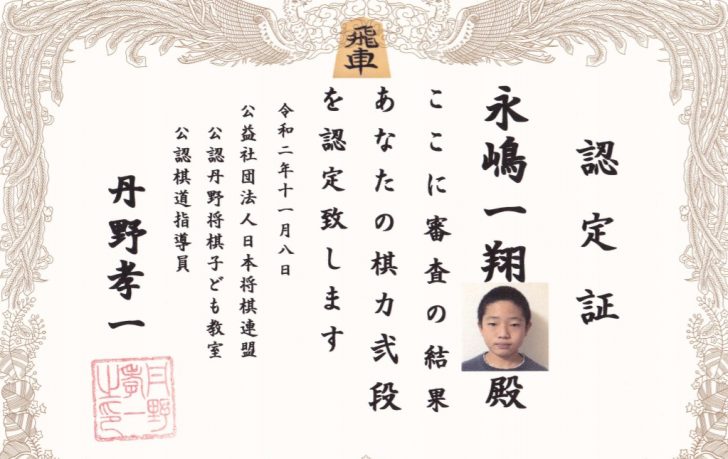 飛車
認定証
永嶋一翔 殿
ここに審査の結果
あなたの棋力弐段
を認定致します
令和二年十一月八日
公益社団法人日本将棋連盟
公認丹野将棋子ども教室
公認棋道指導員
丹野孝一
丹野
孝一
之印